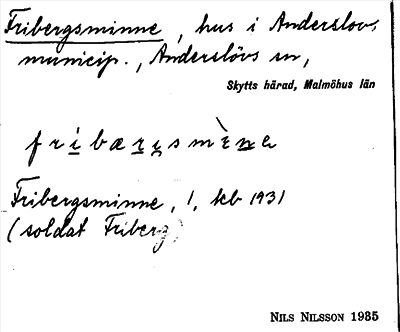 Fribergsminne, hus i Anderslövs
municip., Anderslövs sn,
Skytts härad, Malmöhus län
fribærgsmìna
Fribergsminne, 1, tkb 1931
(soldat Friberg)
NILS NILSSON 1935